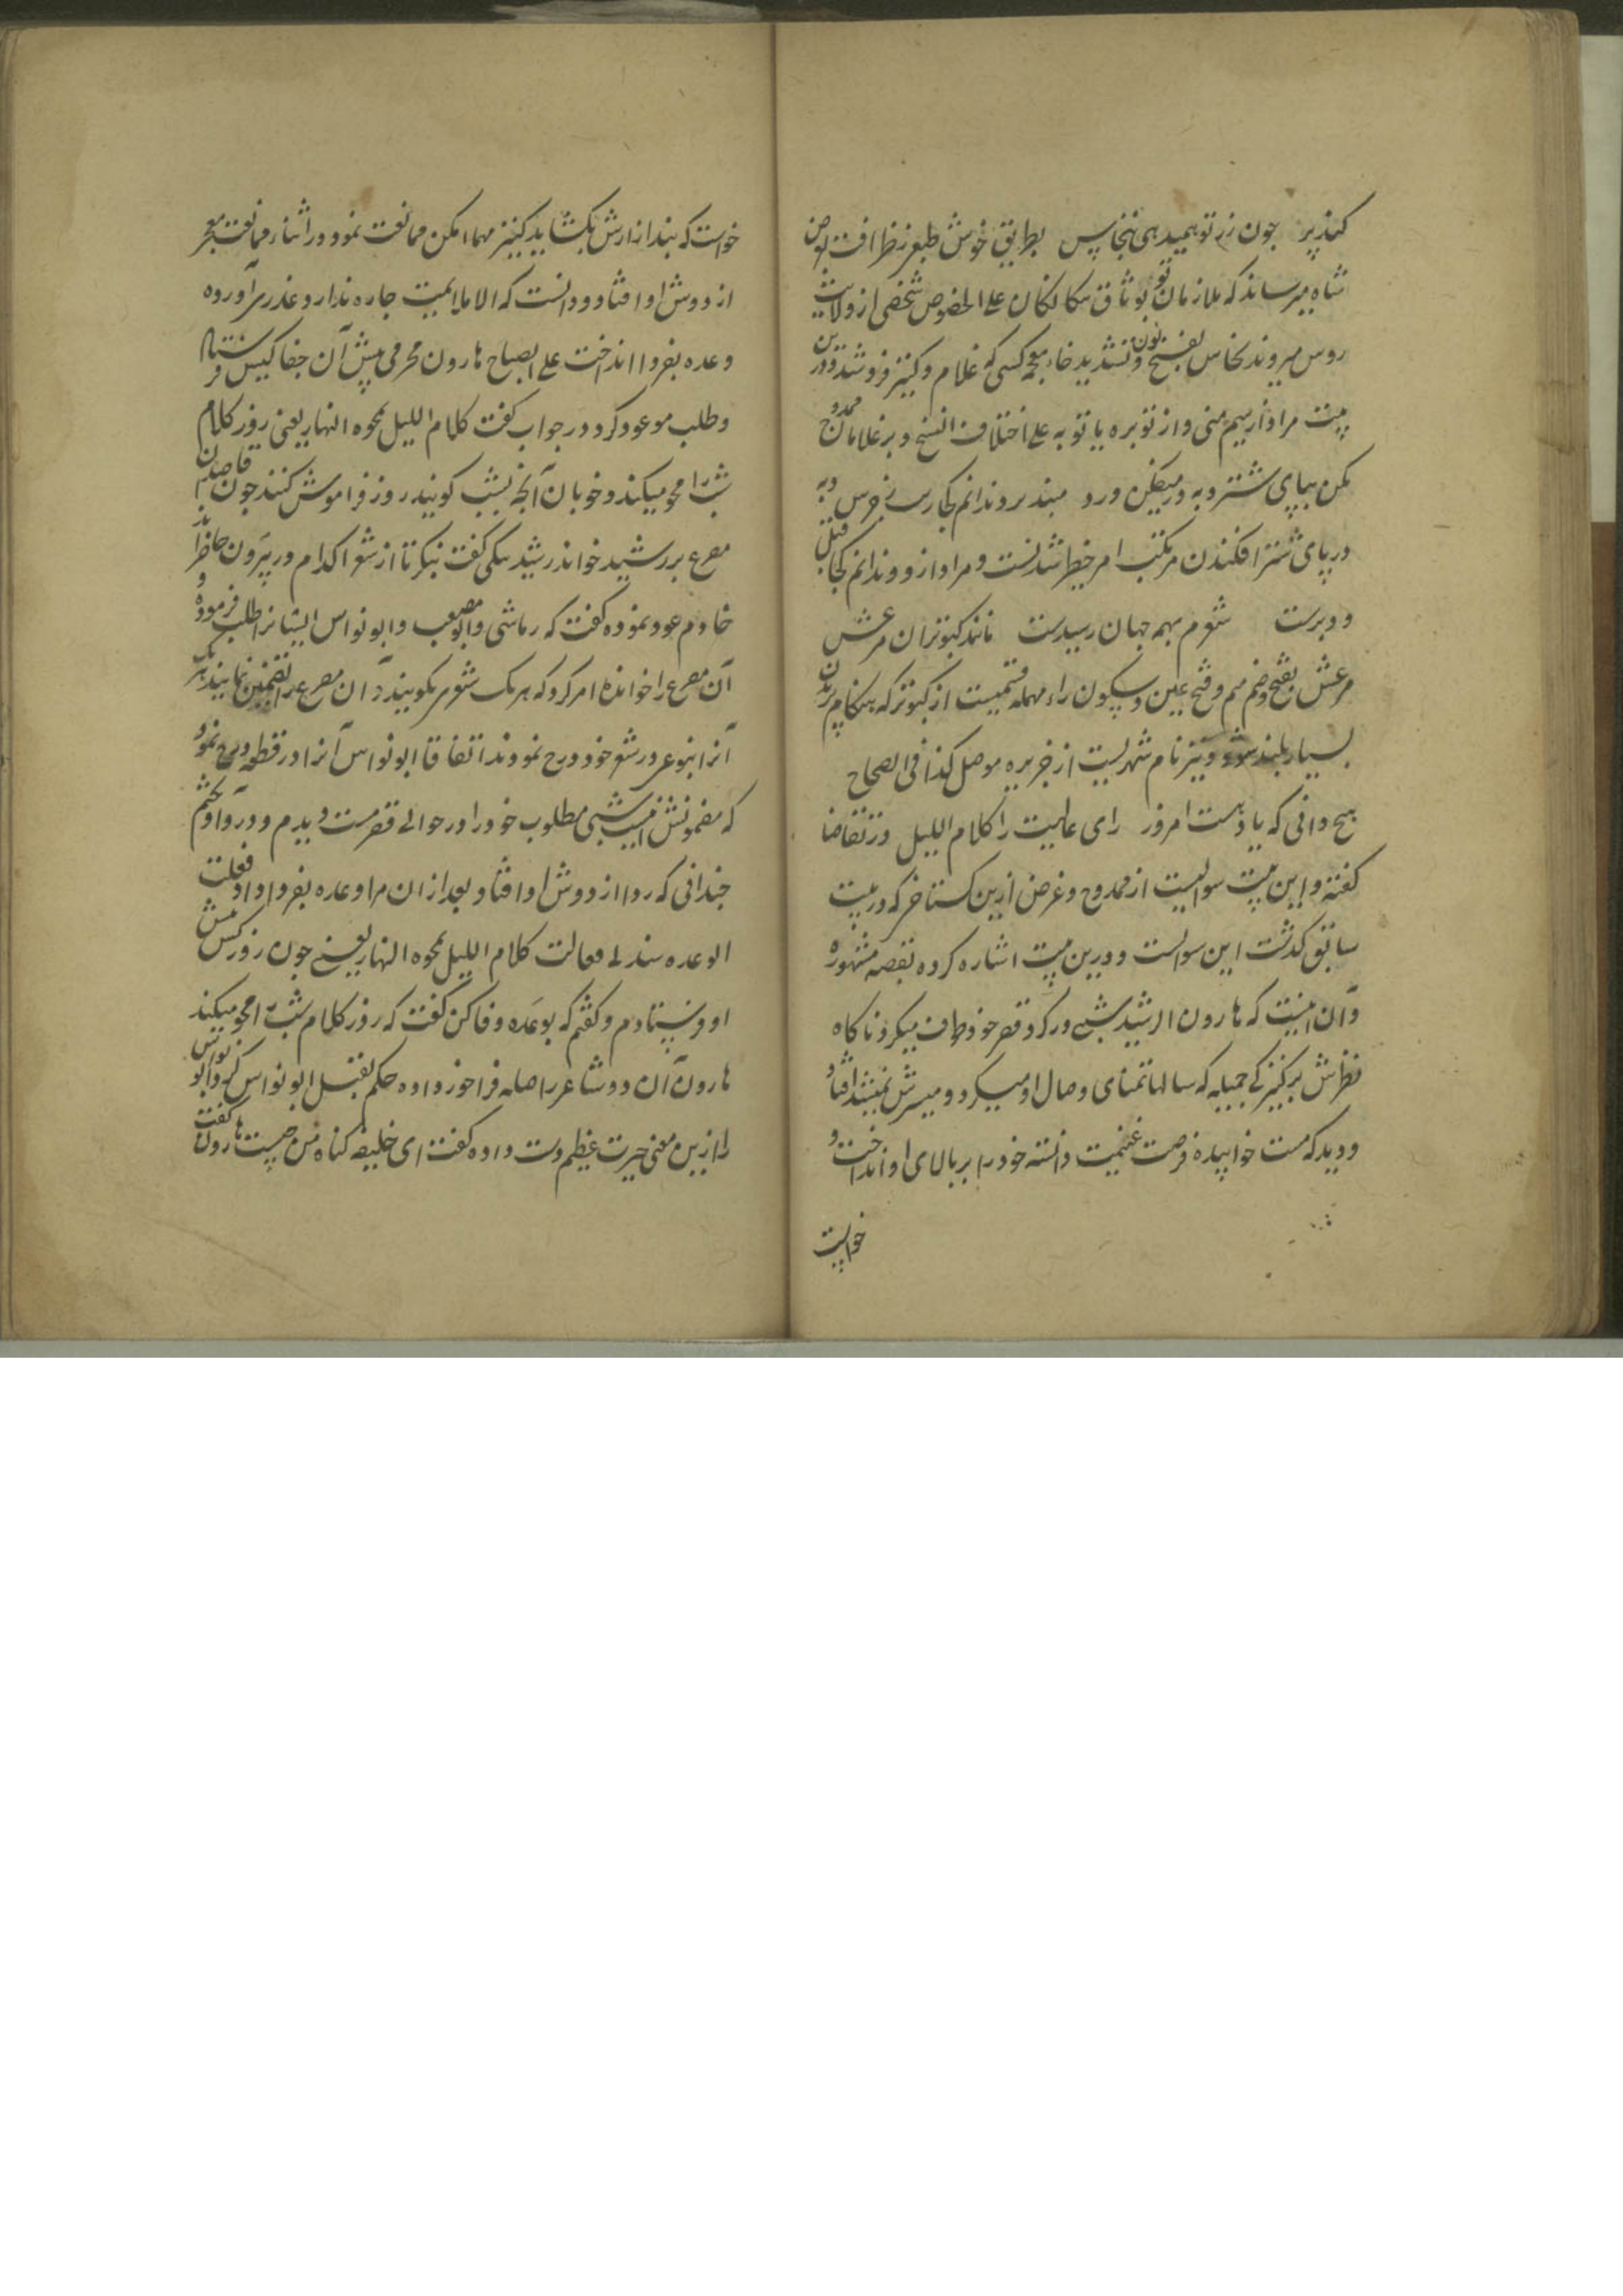 کندپیر چون زر تو بمیدهی نخاس بطریق خوش طبعی و ظرافت بعرض
شاه میرساند که ملازمان تو بوثاق سکالکان علی الخصوص شخصی از ولایت
روس میروند نخاس بفتح نون و تشدید خاء معجمه کسی که غلام و کنیز فروشد و درین
بیت مراد از سیم منی و از توبره یا توبه علی اختلاف النسخ دبر غلامان ممدوح
مکن بپای شتر دبه در میفکن ورد مبند بر دندانم بکار خرس دبه
در پای شتر افکندن مرتکب امر خطیر شدنست و مراد از دندانم کجا قبل
و دبرست شعرم بهمه جهان رسیدست مانند کبوتران مرعش
مرعش بفتح و ضم میم و فتح عین و سکون راء مهمله قسمیست از کبوتر که بهنگام پریدن
بسیار بلند شود و نیز نام شهریست از جزیره موصل کذا فی الصحاح
هیچ دانی که یاد هست امروز رای عالیت را کلام اللیل در تقاضا
گفته و این بیت سوالیست از ممدوح و غرض ازین گستاخی که در بیت
سابق گذشت این سوالست و درین بیت اشاره کرده بقصه مشهوره
و آن اینست که هارون الرشید شبی در گرد قصر خود طواف میکرد ناگاه
نظرش بر کنیزکی جمیله که سالها تمنای وصال او میکرد و میسرش نمیشد افتاد
و دید که مست خوابیده فرصت غنیمت دانسته خود را بر بالای او انداخت و
خواست
خواست که بند ازارش بکشاید کنیز مهما امکن ممانعت نمود و در اثنای ممانعت معجر
از دوش او افتاد و دانست که الا ملایمت چاره ندارد عذری آورده
وعده بفردا انداخت علی الصباح هارون محرمی پیش آن جفاکیش فرستاد
و طلب موعود کرد در جواب گفت کلام اللیل یمحوه النهار یعنی روز کلام
شب را محو میکند و خوبان آنچه بشب گویند روز فراموش کنند چون قاصد این
مصرع بر رشید خواند رشید بیکی گفت بنگر تا از شعرا کدام در بیرون حاضراند
خادم عود نموده گفت که رقاشی و ابو مصعب و ابونواس ایشانرا طلب فرموده و
آن مصرع را خوانده امر کرد که هر یک شعری بگویند و آن مصرع را تضمین نمایند هر یک
آنرا بنوعی در شعر خود درج نمودند اتفاقا ابونواس آنرا در قطعه درج نمود
که مضمونش اینست شبی مطلوب خود را در حوالی قصر مست دیدم و درو آویختم
چندانی که ردا از دوش او افتاد و بعد از ان مرا وعده بفردا داد فقلت
الوعد سیدتی فقالت کلام اللیل یمحوه النهار یعنی چون روز کس پیش
او فرستادم و گفتم که بوعده وفا کن گفت که روز کلام شب را محو میکند
هارون آن دو شاعر را صله فراخور داده حکم بقتل ابونواس کرد ابونواس
را ازین معنی حیرت عظیم دست داده گفت ای خلیفه گناه من چیست هارون گفت